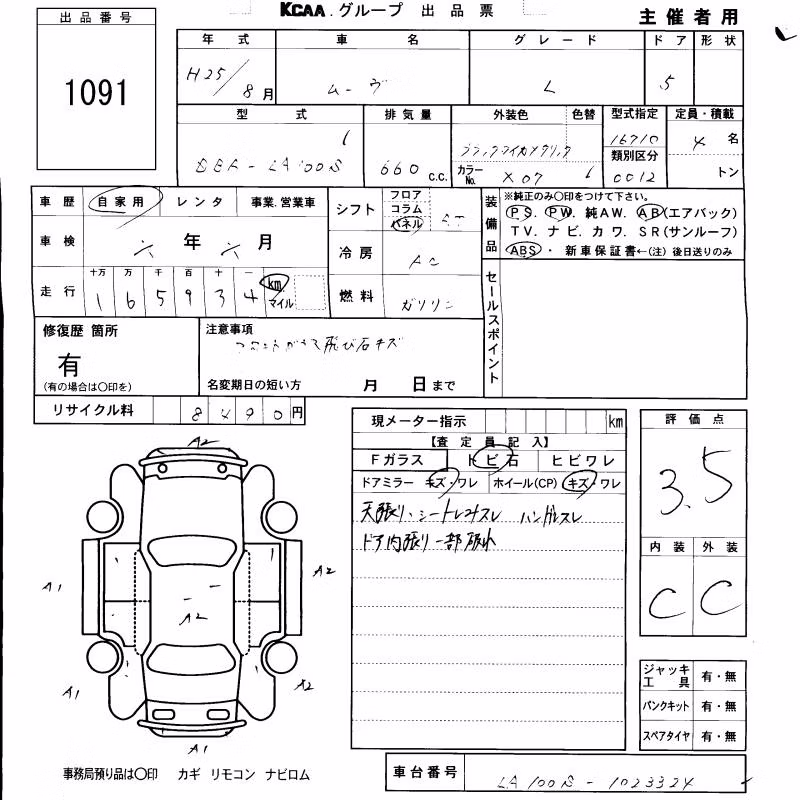 KCAA.グループ 出品票 主催者用
出品番号
1091
年式 車名 グレード ドア 形状
H25/8月 ムーヴ L 5
型式 排気量 外装色 色替 型式指定 定員・積載
DBA-LA100S 660 c.c. ブラックマイカメタリック 16710 4 名
カラーNo. X07 類別区分 0012 トン
車歴 自家用 レンタ 事業.営業車
車検 六年 六月
走行 十万 万 千 百 十 一 km マイル
1 6 5 9 3 4
シフト フロア コラム パネル AT
冷房 AC
燃料 ガソリン
装備品 ※純正のみ〇印をつけて下さい。
PS. PW. 純AW. AB(エアバック)
TV. ナビ. カワ. SR(サンルーフ)
ABS・新車保証書←(注) 後日送りのみ
セールスポイント
修復歴 箇所
有
(有の場合は〇印を)
注意事項
フロントガラス飛び石キズ
名変期日の短い方 月 日まで
リサイクル料 8490円
現メーター指示 km
【査定員記入】
Fガラス トビ石 ヒビワレ
ドアミラー キズ・ワレ ホイール(CP) キズ・ワレ
天張り、シートしみスレ ハンドルスレ
ドア内張り一部破れ
評価点
3.5
内装 外装
C C
A2
A1 A2
A2
A1 A2
A1
ジャッキ工具 有・無
パンクキット 有・無
スペアタイヤ 有・無
事務局預り品は〇印 カギ リモコン ナビロム
車台番号 LA100S-1023324